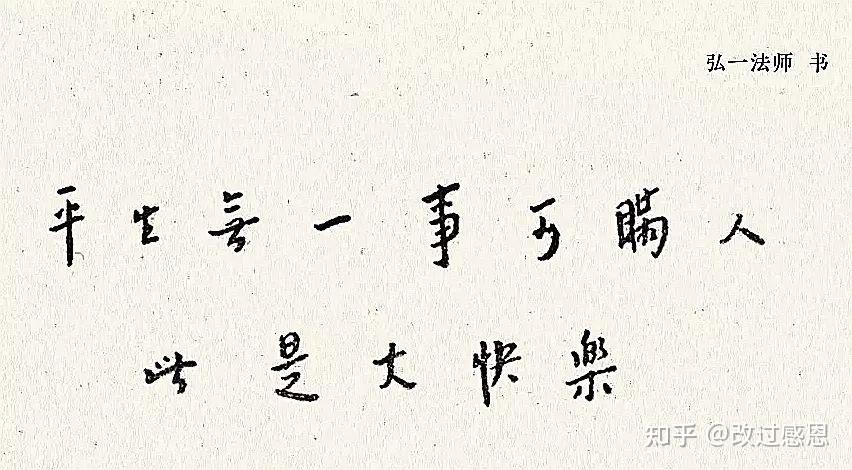 弘一法师 书
平生無一事可瞞人
此是大快樂
知乎 @改过感恩